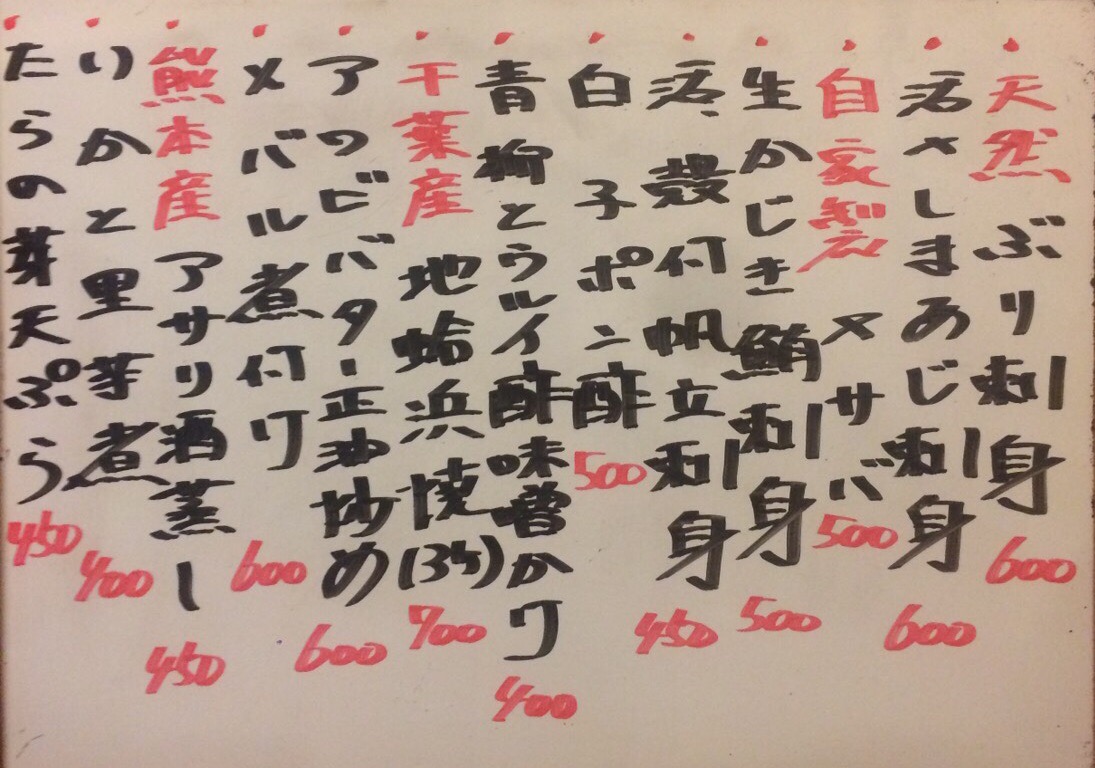 天然ぶり刺身 600
活〆しまあじ刺身 600
自家製〆サバ 500
生かじき鮪刺身 500
活殻付帆立刺身 450
白子ポン酢 500
青柳とウルイ酢味噌かけ 400
千葉産地蛤浜焼(3ケ) 700
アワビバター正油炒め 600
メバル煮付け 600
熊本産アサリ酒蒸し 450
いかと里芋煮 400
たらの芽天ぷら 450